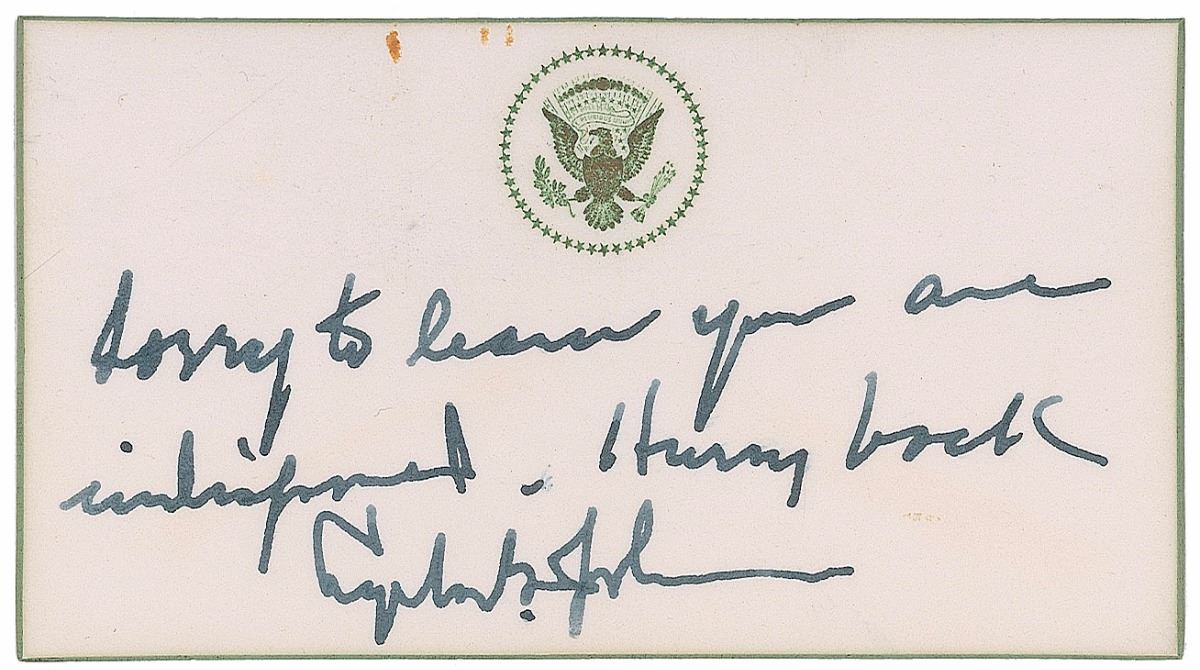 Sorry to learn you are
indisposed. Hurry back
Lyndon B. Johnson